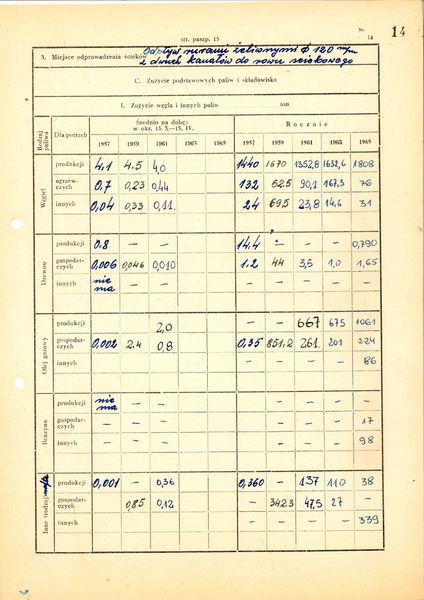 str. paszp. 15
14
14
3. Miejsce odprowadzenia ścieków Odpływ rurami żeliwnymi ϕ 120 m/m
z dwóch kanałów do rowu ściekowego
C. Zużycie podstawowych paliw i składowiska
1. Zużycie węgla i innych paliw ton
Rodzaj paliwa Dla potrzeb Średnio na dobę: w okr. 15 X—15. IV. Rocznie
1957 1959 1961 1963 1965 1957 1959 1961 1963 1965
Węgiel
produkcji 4,1 4.5 4,0 1440 1670 1352,8 1632,6 1808
ogrzewczych 0,7 0,23 0,44 132 62.5 90,1 167,3 76
innych 0,04 0,33 0,11. 24 69,5 23,8 14,6 31
Drewno
produkcji 0.8 — — 14.4 — — — 0,790
gospodarczych 0,006 0,046 0,010 1.2 44 3,5 1,0 1,65
innych nie ma — — — — — — —
Olej gazowy
produkcji 2,0 — — 667 675 1061
gospodarczych 0,002 2.4 0,8 0,35 851,2 261. 201 224
innych — — — — 86
Benzyna
produkcji nie ma — — — — — — —
gospodarczych — — — — — — — 17
innych — — — — — — — 98
Inne (rodzaj)
produkcji 0,001 — 0,36 0,360 — 137 110 38
gospodarczych 0,85 0,12 — 342.3 47,5 27 —
innych — — — — 339